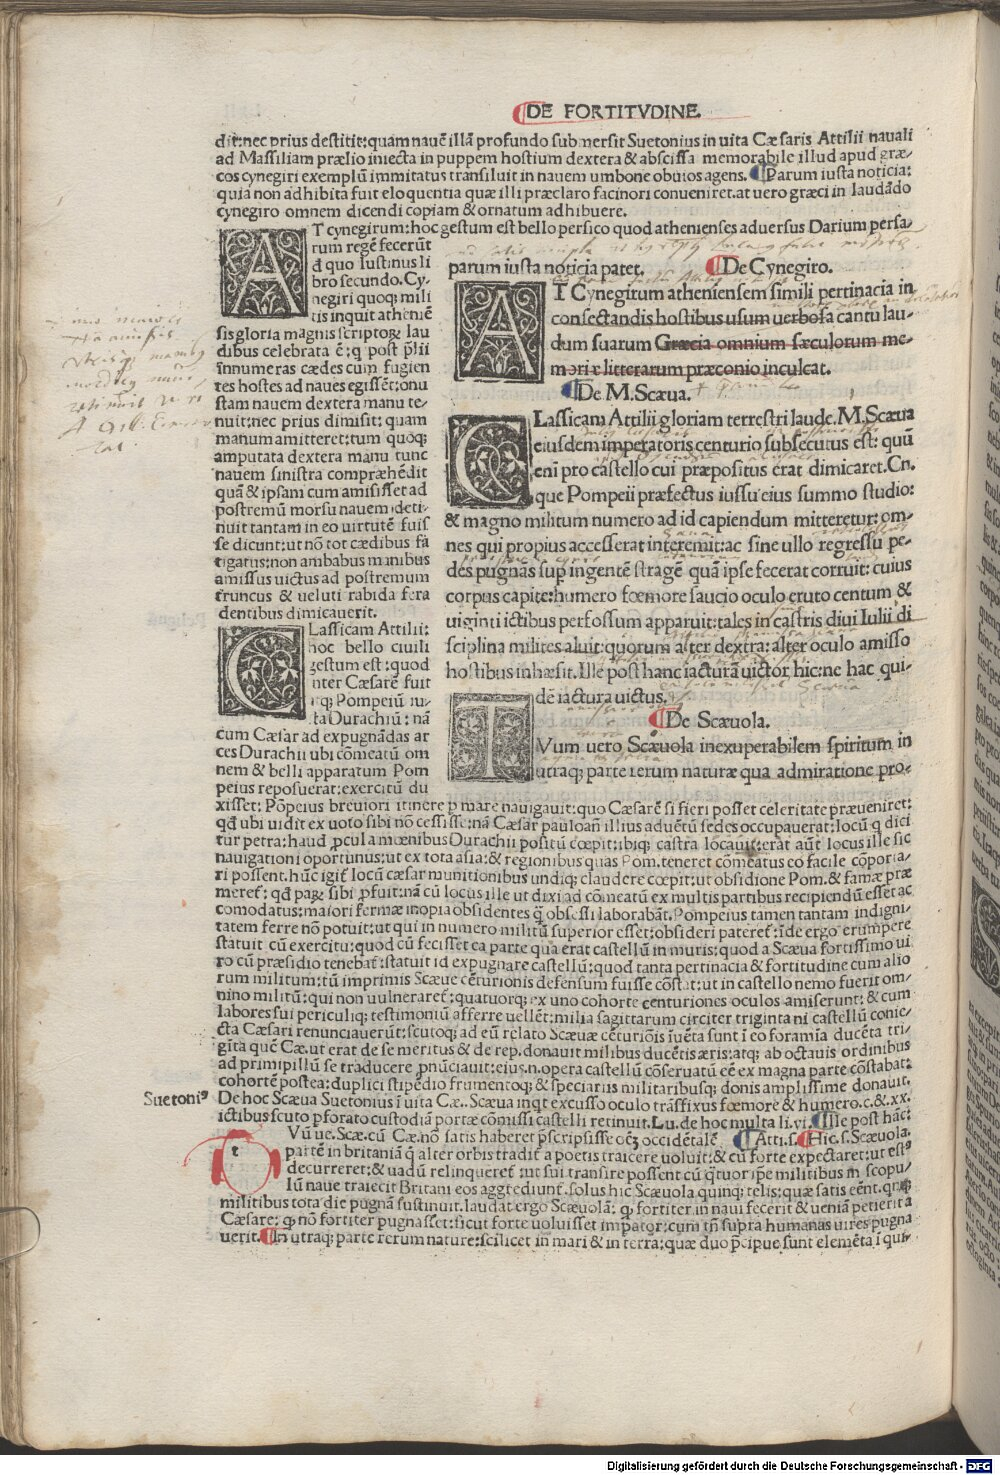 DE FORTITVDINE.
dit:nec prius destitit:quam nauē illā profundo submersit Suetonius in uita Cæsaris Attilii nauali
ad Massiliam prælio iniecta in puppem hostium dextera & abscissa memorabile illud apud græ-
cos cynegiri exemplū immitatus transiluit in nauem umbone obuios agens. Parum iusta noticia:
quia non adhibita fuit eloquentia quæ illi præclaro facinori conueniret.at uero græci in laudādo
cynegiro omnem dicendi copiam & ornatum adhibuere.
AT cynegirum:hoc gestum est bello persico quod athenienses aduersus Darium persa-
rum regē fecerūt
đ quo Iustinus li
bro secundo.Cy-
negiri quoq; mili
tis inquit atheniē
sis gloria magnis scriptoꝝ lau
dibus celebrata ē; q post p̄lii
īnnumeras cædes cum fugien
tes hostes ad naues egissēt:onu
stam nauem dextera manu te-
nuit:nec prius dimisit: quam
manum amitteret:tum quoq;
amputata dextera manu tunc
nauem sinistra compræhēdit
quā & ipsani cum amisisset ad
postremū morsu nauem deti-
nuit tantam in eo uirtutē fuis
se dicunt:ut nō tot cædibus fa
tigatus:non ambabus manibus
amissus uictus ad postremum
truncus & ueluti rabida fera
dentibus dimicauerit.
CLassicam Attilii:
hoc bello ciuili
gestum est:quod
inter Cæsarē fuit
rq; Pompeiū iu-
ta Durachiū: nā
cum Cæsar ad expugnādas ar
ces Durachii ubi cōmeatū om
nem & belli apparatum Pom
peius reposuerat:exercitū du
parum iusta noticia patet.
De Cynegiro.
AT Cynegirum atheniensem simili pertinacia in
consectandis hostibus usum uerbosa cantu lau-
dum suarum Græcia omnium sæculorum me-
moriæ litterarum præconio inculcat.
De M.Scæua.
CLassicam Attilii gloriam terrestri laude.M.Scæua
eiusdem imperatoris centurio subsecutus est: quū
enī pro castello cui præpositus erat dimicaret.Cn.
que Pompeii præfectus iussu eius summo studio:
& magno militum numero ad id capiendum mitteretur:om-
nes qui propius accesserat interemit:ac sine ullo regressu pe-
des pugnās sup ingentē stragē quā ipse fecerat corruit: cuius
corpus capite:humero fœmore saucio oculo eruto centum &
uiginti ictibus perfossum apparuit:tales in castris diui Iulii di
sciplina milites aluit:quorum alter dextra:alter oculo amisso
hostibus inhæsit. Ille post hanc iacturā uictor hic:ne hac qui-
dē iactura uictus.
De Scæuola.
TVum uero Scæuola inexuperabilem spiritum in
utraq; parte rerum naturæ qua admiratione pro-
xisset: Pōpeius breuiori itinere p mare nauigauit:quo Cæsarē si fieri posset celeritate præueniret:
qđ ubi uidit ex uoto sibi nō cessisse:nā Cæsar pauloan̄ illius aduētū sedes occupauerat:locū q dici
tur petra:haud pcul a mœnibus Durachii positū cœpit:ibiq; castra locauit:erat aūt locus ille sic
nauigationi oportunus:ut ex tota asia:& regionibus quas Pom.teneret cōmeatus eo facile cōporta-
ri possent.hūc igit̄ locū cæsar munitionibus undiq; claudere cœpit:ut obsidione Pom.& famæ præ
meret̄: qđ paꝝ sibi pfuit:nā cū locus ille ut dixi ad cōmeatū ex multis partibus recipiendū esset ac
comodatus:maiori fermæ inopia obsidentes q̄ obsessi laborabāt.Pompeius tamen tantam indigni-
tatem ferre nō potuit:ut qui in numero militū superior esset:obsideri pateret̄:īde ergo erumpere
statuit cū exercitu:quod cū fecisset ea parte qua erat castellū in muris:quod a Scæua fortissimo ui
ro cū præsidio tenebat̄:statuit id expugnare castellū:quod tanta pertinacia & fortitudine cum alio
rum militum:tū imprimis Scæuæ cēturionis defensum fuisse cōstat:ut in castello nemo fuerit om-
nino militū;qui non uulneraret̄:quatuorq; ex uno cohorte centuriones oculos amiserunt: & cum
labores sui periculiq; testimoniū afferre uellēt:milia sagittarum circiter triginta ni castellū conie-
cta Cæsari renunciauerūt:scutoq; ad eū relato Scæuæ cēturiōis īuēta sunt ī eo foramīa ducēta tri-
gīta quē Cæ.ut erat de se meritus & de rep.donauit milibus ducētis æris:atq; ab octauis ordinibus
ad primipilū se traducere pnūciauit:eius.n.opera castellū cōseruatū eē ex magna parte cōstabat:
cohortē postea:duplici stipēdio frumentoq; & speciariis militaribusq; donis amplissime donauit.
Suetoniꝰ
De hoc Scæua Suetonius ī uita Cæ..Scæua inqt excusso oculo trāsfixus fœmore & humero.c.&.xx.
ictibus scuto pforato custodiā portæ cōmissi castelli retinuit.Lu.de hoc multa li.vi. Ille post hāc:
Atti.s. Hic.s.Scæuola.
t
Vū ue.Scæ.cū Cæ.nō satis haberet p̄scripsisse ocēꝫ occidētalē
partē in britaniā q̄ alter orbis tradit̄ a poetis traicere uoluit:& cū forte expectaret:ut estꝰ
decurreret:& uadū relinqueret̄ :ut sui transire possent cū q̄tuor ip̄e militibus ī scopu-
lū naue traiecit Britani eos aggrediunt̄.solus hic Scæuola quinq; telis:quæ satis eēnt.qnꝗ
militibus tota die pugnā sustinuit.laudat ergo Scæuolā: q fortiter in naui fecerit & ueniā petierit a
Cæsare: q nō fortiter pugnasset:sicut forte uoluisset impator:cum tn̄ supra humanas uires pugna
uerit. In utraq; parte rerum nature:scilicet in mari & in terra:quæ duo p̄cipue sunt elemēta ī qui-
Digitalisierung gefördert durch die Deutsche Forschungsgemeinschaft - DFG